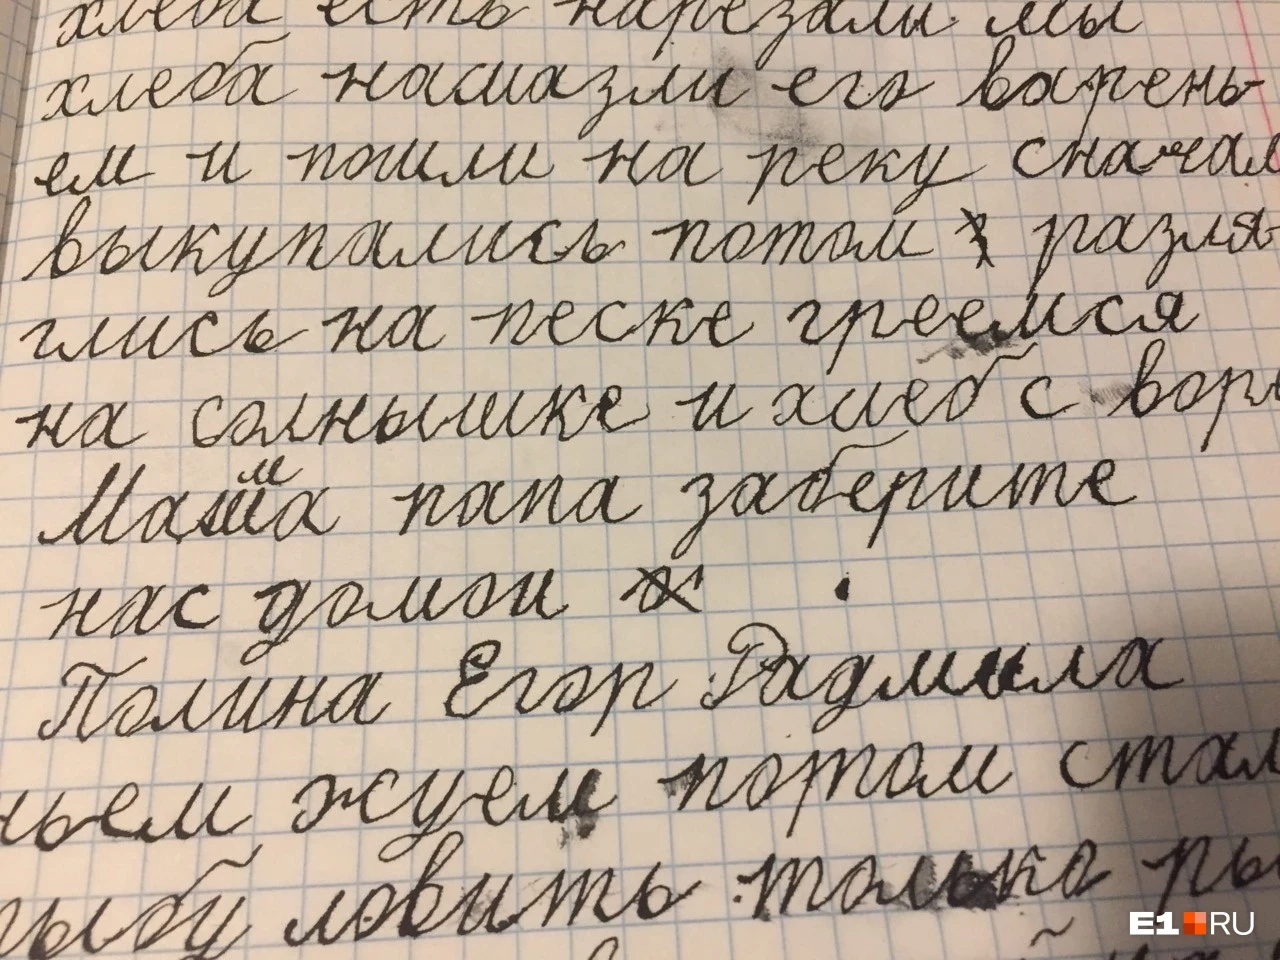 хлеба есть нарезали мы
хлеба намазли его варень-
ем и пошли на реку сначал
выкупались потом разля-
глись на песке греемся
на солнышке и хлеб с вар
Мама папа заберите
нас домои
Полина Егор Радмила
ньем жуем потом стал
рыбу ловить только ры
E1.RU